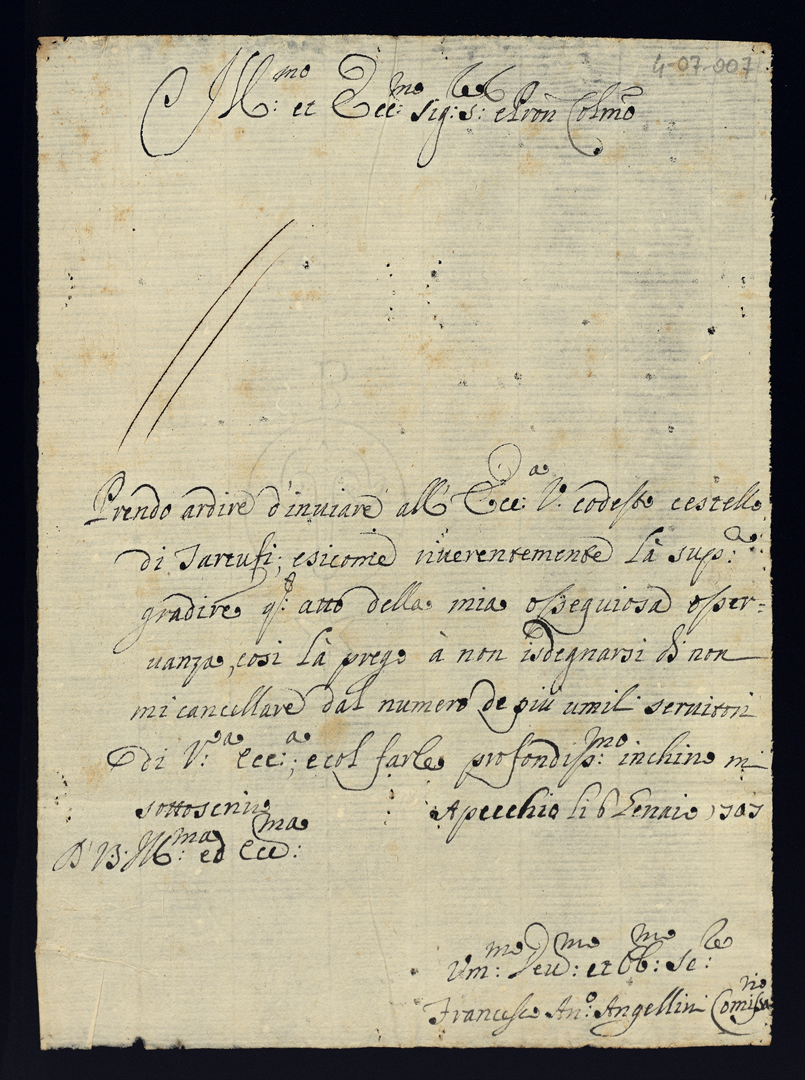 4-07-007
Ill:mo et Ecc:mo Sig:re S: e Pron Colmo
Prendo ardire d'inuiare all' Ecc:a V: codeste cestelle
di Tartufi; e sicome riuerentemente là sup:a
gradire q:o atto della mia osseguiosa osser=
uanza, cosi là prego à non isdegnarsi di non
mi cancellare dal numero de piu umil seruitori
di V:a Ecc:a; e col farle profondiss:mo inchino mi
sottoscriuo Apecchio li 6 Genaio 1707
D V: Ill:ma ed Ecc:ma
Vm:mo Deu:mo et Obb:mo Se:re
Francesco An:o Angellini Comissario